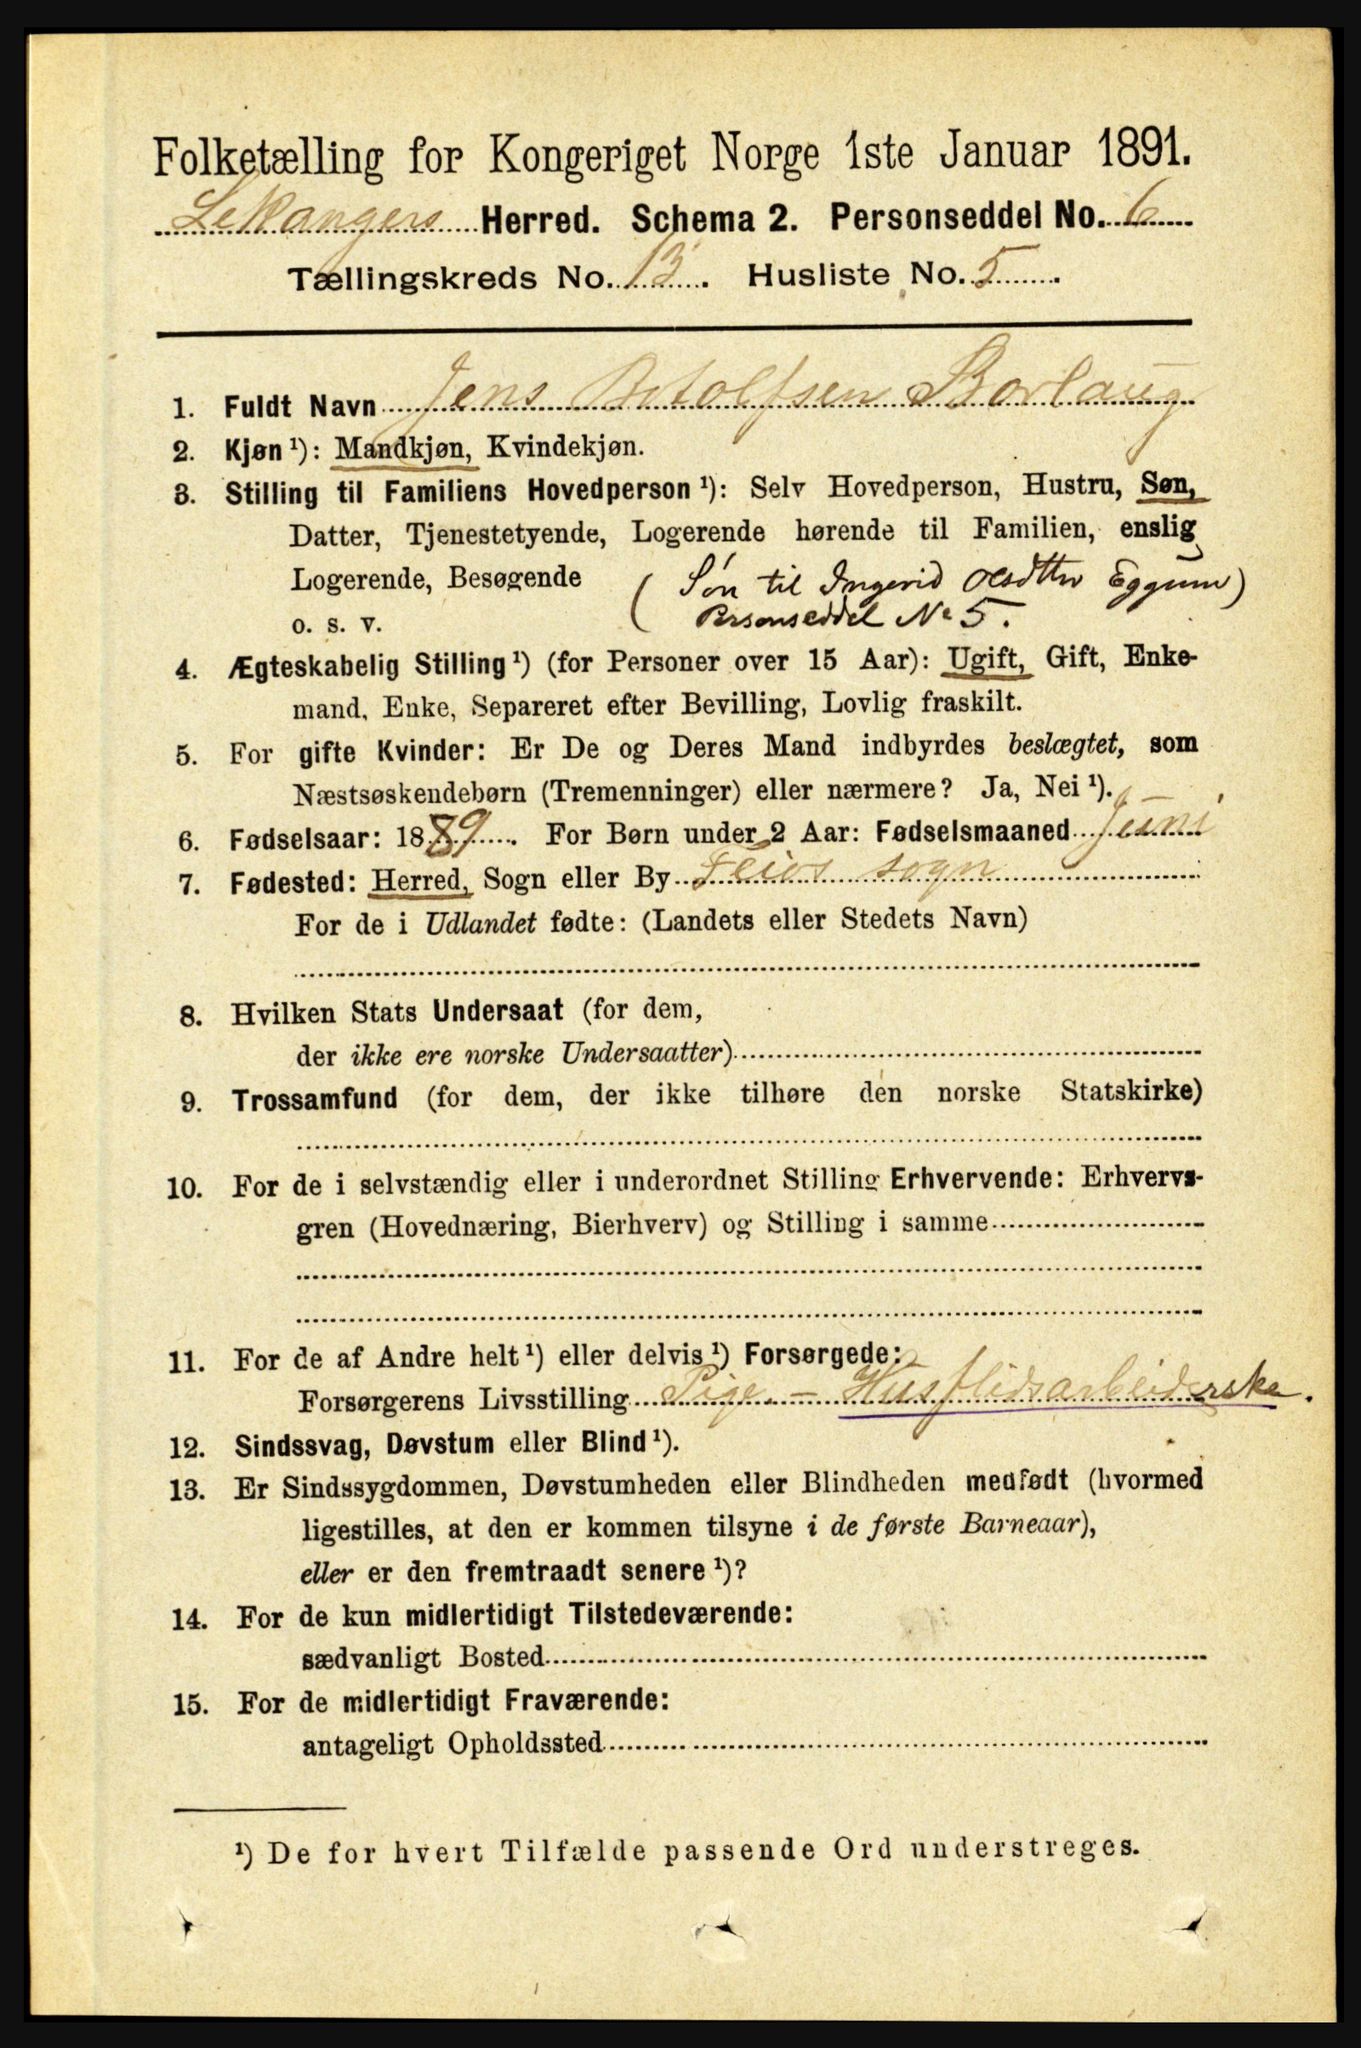 Folketælling for Kongeriget Norge 1ste Januar 1891.
Lekangers Herred. Schema 2. Personseddel No. 6
Tællingskreds No. 13. Husliste No. 5.
1. Fuldt Navn Jens Botolfsen Borlaug
2. Kjøn ¹): Mandkjøn, Kvindekjøn.
3. Stilling til Familiens Hovedperson ¹): Selv Hovedperson, Hustru, Søn,
Datter, Tjenestetyende, Logerende hørende til Familien, enslig
Logerende, Besøgende (Søn til Ingerid Olsdtter Eggum)
o. s. v. Personseddel No 5.
4. Ægteskabelig Stilling ¹) (for Personer over 15 Aar): Ugift, Gift, Enke-
mand, Enke, Separeret efter Bevilling, Lovlig fraskilt.
5. For gifte Kvinder: Er De og Deres Mand indbyrdes beslægtet, som
Næstsøskendebørn (Tremenninger) eller nærmere? Ja, Nei ¹).
6. Fødselsaar: 1889. For Børn under 2 Aar: Fødselsmaaned Juni
7. Fødested: Herred, Sogn eller By Feios sogn
For de i Udlandet fødte: (Landets eller Stedets Navn)
8. Hvilken Stats Undersaat (for dem,
der ikke ere norske Undersaatter)
9. Trossamfund (for dem, der ikke tilhøre den norske Statskirke)
10. For de i selvstændig eller i underordnet Stilling Erhvervende: Erhvervs-
gren (Hovednæring, Bierhverv) og Stilling i samme
11. For de af Andre helt ¹) eller delvis ¹) Forsørgede:
Forsørgerens Livsstilling Pige. - Husflidsarbeiderske.
12. Sindssvag, Døvstum eller Blind ¹).
13. Er Sindssygdommen, Døvstumheden eller Blindheden medfødt (hvormed
ligestilles, at den er kommen tilsyne i de første Barneaar),
eller er den fremtraadt senere ¹)?
14. For de kun midlertidigt Tilstedeværende:
sædvanligt Bosted
15. For de midlertidigt Fraværende:
antageligt Opholdssted
¹) De for hvert Tilfælde passende Ord understreges.